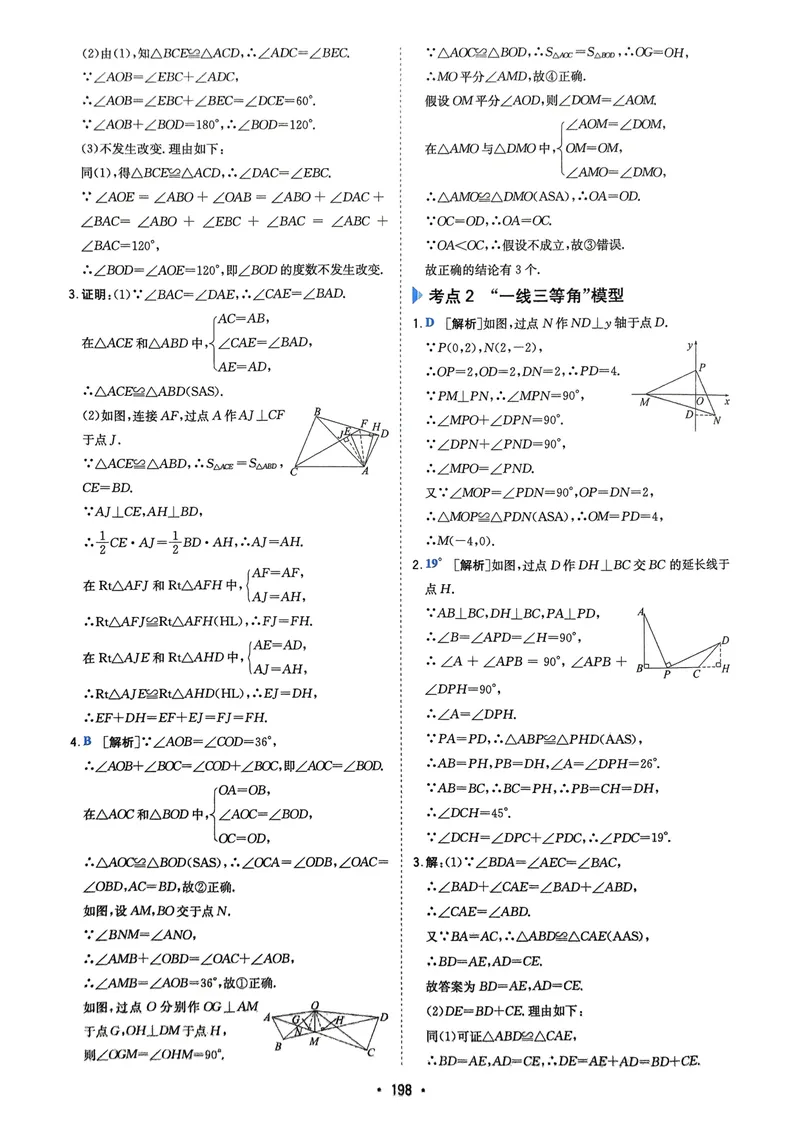 (2)由(1),知△BCE≌△ACD,∴∠ADC=∠BEC.
∵∠AOB=∠EBC+∠ADC,
∴∠AOB=∠EBC+∠BEC=∠DCE=60°.
∵∠AOB+∠BOD=180°,∴∠BOD=120°.
(3)不发生改变.理由如下:
同(1),得△BCE≌△ACD,∴∠DAC=∠EBC.
∵∠AOE=∠ABO+∠OAB=∠ABO+∠DAC+
∠BAC=∠ABO+∠EBC+∠BAC=∠ABC+
∠BAC=120°,
∴∠BOD=∠AOE=120°,即∠BOD的度数不发生改变.
3.证明:(1)∵∠BAC=∠DAE,∴∠CAE=∠BAD.
AC=AB,
在△ACE和△ABD中,{∠CAE=∠BAD,
AE=AD,
∴△ACE≌△ABD(SAS).
(2)如图,连接AF,过点A作AJ⊥CF
于点J.
B
F
H
J
E
D
C
A
∵△ACE≌△ABD,∴S△ACE=S△ABD,
CE=BD.
∵AJ⊥CE,AH⊥BD,
∴1/2CE·AJ=1/2BD·AH,∴AJ=AH.
AF=AF,
在Rt△AFJ和Rt△AFH中,{
AJ=AH,
∴Rt△AFJ≌Rt△AFH(HL),∴FJ=FH.
AE=AD,
在Rt△AJE和Rt△AHD中,{
AJ=AH,
∴Rt△AJE≌Rt△AHD(HL),∴EJ=DH,
∴EF+DH=EF+EJ=FJ=FH.
4.B [解析]∵∠AOB=∠COD=36°,
∴∠AOB+∠BOC=∠COD+∠BOC,即∠AOC=∠BOD.
OA=OB,
在△AOC和△BOD中,{∠AOC=∠BOD,
OC=OD,
∴△AOC≌△BOD(SAS),∴∠OCA=∠ODB,∠OAC=
∠OBD,AC=BD,故②正确.
如图,设AM,BO交于点N.
∵∠BNM=∠ANO,
∴∠AMB+∠OBD=∠OAC+∠AOB,
∴∠AMB=∠AOB=36°,故①正确.
如图,过点O分别作OG⊥AM
于点G,OH⊥DM于点H,
则∠OGM=∠OHM=90°.
O
A
G
H
D
N
B
M
C
∵△AOC≌△BOD,∴S△AOC=S△BOD,∴OG=OH,
∴MO平分∠AMD,故④正确.
假设OM平分∠AOD,则∠DOM=∠AOM.
∠AOM=∠DOM,
在△AMO与△DMO中,{OM=OM,
∠AMO=∠DMO,
∴△AMO≌△DMO(ASA),∴OA=OD.
∵OC=OD,∴OA=OC.
∵OA<OC,∴假设不成立,故③错误.
故正确的结论有3个.
考点2 “一线三等角”模型
1.D [解析]如图,过点N作ND⊥y轴于点D.
∵P(0,2),N(2,-2),
∴OP=2,OD=2,DN=2,∴PD=4.
∵PM⊥PN,∴∠MPN=90°,
∴∠MPO+∠DPN=90°.
∵∠DPN+∠PND=90°,
∴∠MPO=∠PND.
y
P
M
O
x
D
N
又∵∠MOP=∠PDN=90°,OP=DN=2,
∴△MOP≌△PDN(ASA),∴OM=PD=4,
∴M(-4,0).
2.19° [解析]如图,过点D作DH⊥BC交BC的延长线于
点H.
∵AB⊥BC,DH⊥BC,PA⊥PD,
∴∠B=∠APD=∠H=90°,
∴∠A+∠APB=90°,∠APB+
∠DPH=90°,
A
D
B
P
C
H
∴∠A=∠DPH.
∵PA=PD,∴△ABP≌△PHD(AAS),
∴AB=PH,PB=DH,∠A=∠DPH=26°.
∵AB=BC,∴BC=PH,∴PB=CH=DH,
∴∠DCH=45°.
∵∠DCH=∠DPC+∠PDC,∴∠PDC=19°.
3.解:(1)∵∠BDA=∠AEC=∠BAC,
∴∠BAD+∠CAE=∠BAD+∠ABD,
∴∠CAE=∠ABD.
又∵BA=AC,∴△ABD≌△CAE(AAS),
∴BD=AE,AD=CE.
故答案为BD=AE,AD=CE.
(2)DE=BD+CE.理由如下:
同(1)可证△ABD≌△CAE,
∴BD=AE,AD=CE,∴DE=AE+AD=BD+CE.
·198·